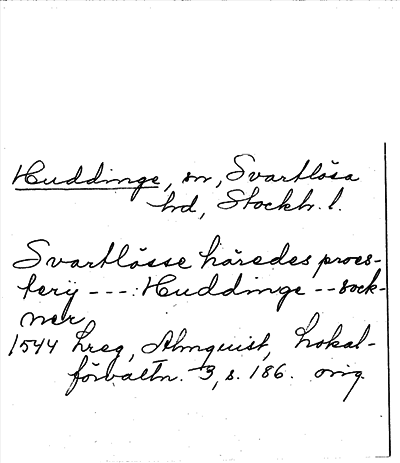 Huddinge, sn, Svartlösa
hd, Stockh. l.
Svartlösse häredes proes-
terij ---: Huddinge -- sock-
ner
1544 hreg, Almquist, Lokal-
förvaltn. 3, s. 186. orig.